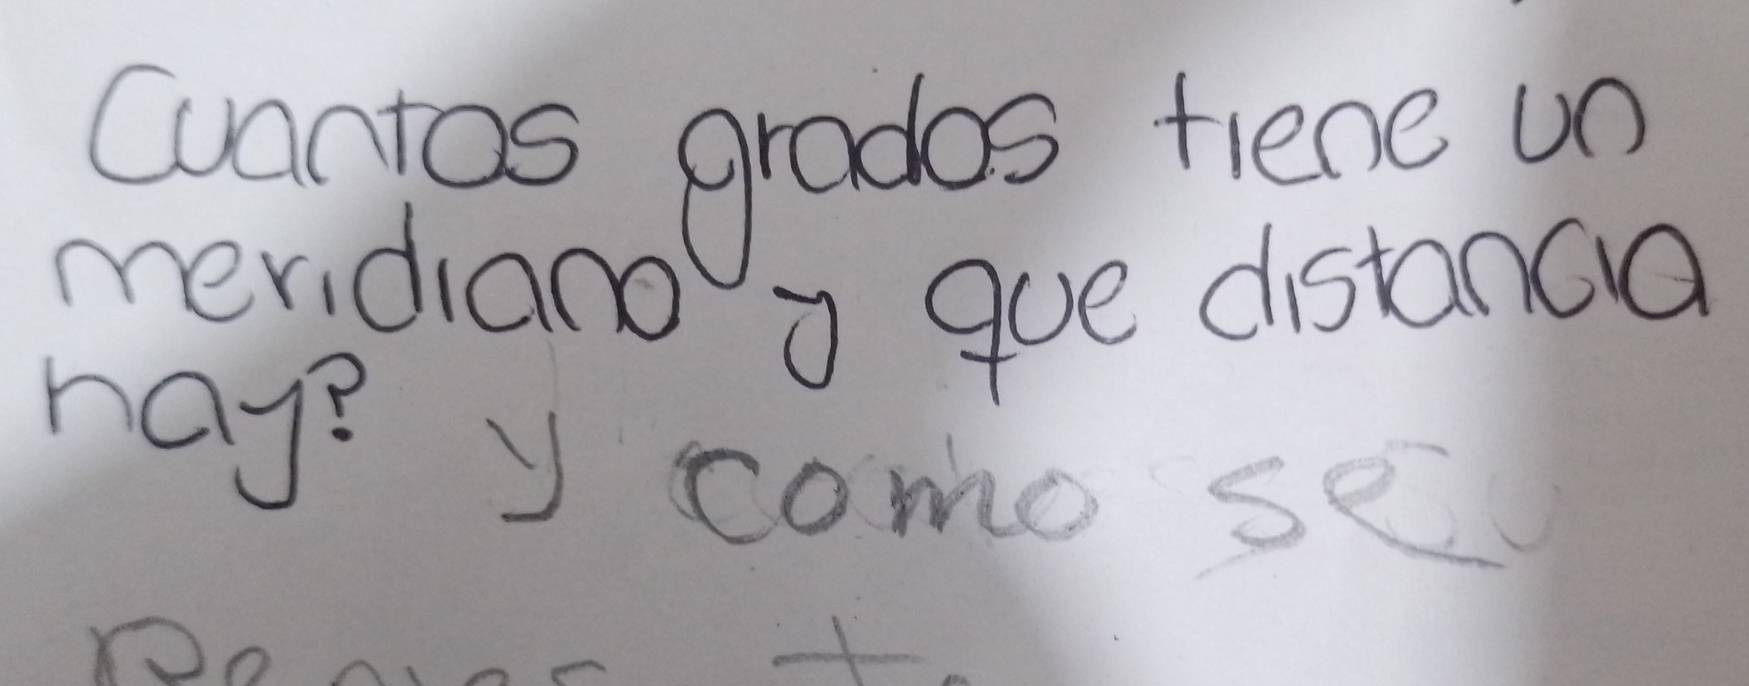 Cuantos grados tiene un
meridiano y que distancia
hay?
y como se